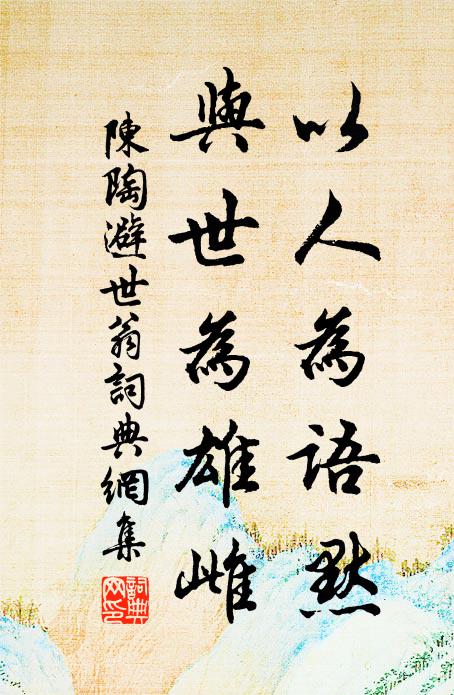 以人為語默
與世為雄雌
陳陶避世翁詞典網集
詞典